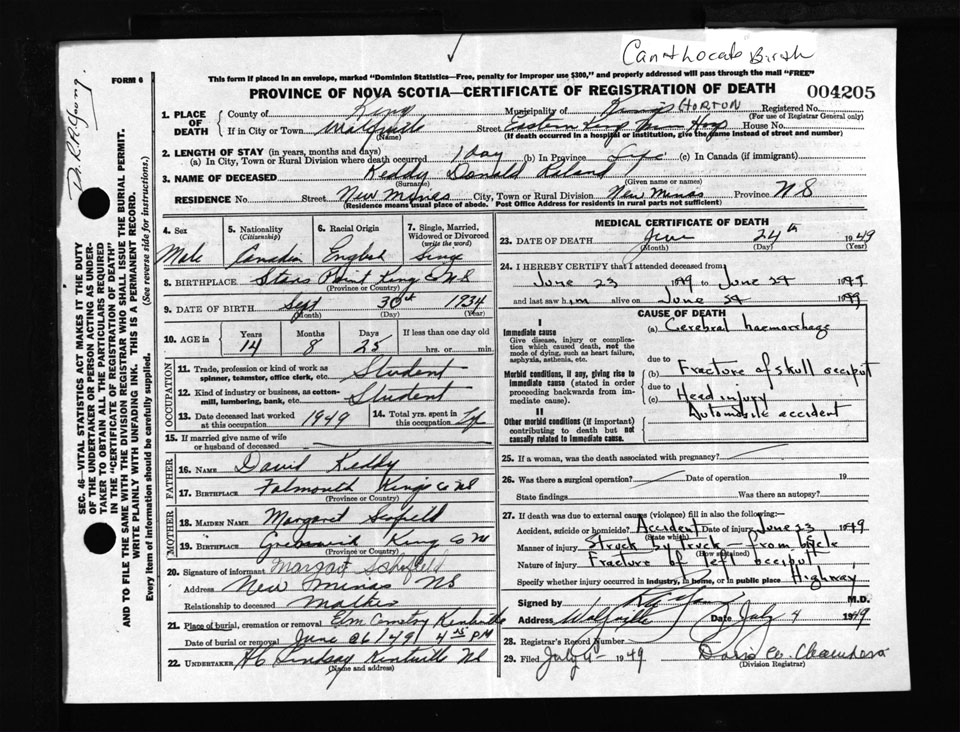 Can't Locate Birth
FORM 6
This form if placed in an envelope, marked "Dominion Statistics—Free, penalty for improper use $300," and properly addressed will pass through the mail "FREE"
PROVINCE OF NOVA SCOTIA—CERTIFICATE OF REGISTRATION OF DEATH 004205
Dr. R.R. Young.
SEC. 46—VITAL STATISTICS ACT MAKES IT THE DUTY
OF THE UNDERTAKER OR PERSON ACTING AS UNDER-
TAKER TO OBTAIN ALL THE PARTICULARS REQUIRED
IN THE "CERTIFICATE OF REGISTRATION OF DEATH"
AND TO FILE THE SAME WITH THE DIVISION REGISTRAR WHO SHALL ISSUE THE BURIAL PERMIT.
WRITE PLAINLY WITH UNFADING INK. THIS IS A PERMANENT RECORD.
Every item of information should be carefully supplied. (See reverse side for instructions.)
1. PLACE OF DEATH
County of King Municipality of Kings HORTON Registered No.
(For use of Registrar General only)
If in City or Town Street Eastern Kings Mem Hosp House No.
(Name) (If death occurred in a hospital or institution, give the name instead of street and number)
2. LENGTH OF STAY (in years, months and days)
(a) In City, Town or Rural Division where death occurred 1 Day (b) In Province Life (c) In Canada (if immigrant)
3. NAME OF DECEASED Keddy Donald Leland
(Surname) (Given name or names)
RESIDENCE No. Street New Minas City, Town or Rural Division New Minas Province N S
(Residence means usual place of abode. Post Office Address for residents in rural parts not sufficient)
4. Sex Male
5. Nationality (Citizenship) Canadian
6. Racial Origin English
7. Single, Married, Widowed or Divorced (write the word) Single
8. BIRTHPLACE Starrs Point King Co N S
(Province or Country)
9. DATE OF BIRTH Sept 30th 1934
(Month) (Day) (Year)
10. AGE in Years 14 Months 8 Days 25 If less than one day old hrs. or min.
OCCUPATION
11. Trade, profession or kind of work as spinner, teamster, office clerk, etc. Student
12. Kind of industry or business, as cotton-mill, lumbering, bank, etc. Student
13. Date deceased last worked at this occupation 1949
14. Total yrs. spent in this occupation
15. If married give name of wife or husband of deceased
FATHER
16. NAME David Keddy
17. BIRTHPLACE Falmouth Kings Co N S
(Province or Country)
MOTHER
18. MAIDEN NAME Margaret
19. BIRTHPLACE Greenwich King Co NS
(Province or Country)
20. Signature of informant Margaret Schofield
Address New Minas N S
Relationship to deceased Mother
21. Place of burial, cremation or removal Elm Cemetry Kentville
Date of burial or removal June 26/49 4 PM
22. UNDERTAKER H C Lindsay Kentville NS
MEDICAL CERTIFICATE OF DEATH
23. DATE OF DEATH June 24th 1949
(Month) (Day) (Year)
24. I HEREBY CERTIFY that I attended deceased from
June 23 1949 to June 24 1949
and last saw him alive on June 24 1949
CAUSE OF DEATH
I
Immediate cause
Give disease, injury or complication which caused death, not the mode of dying, such as heart failure, asphyxia, asthenia, etc.
(a) Cerebral haemorrhage
due to
Morbid conditions, if any, giving rise to immediate cause (stated in order proceeding backwards from immediate cause).
(b) Fracture of skull occiput
due to
(c) Head injury
Automobile accident
II
Other morbid conditions (if important) contributing to death but not causally related to immediate cause.
25. If a woman, was the death associated with pregnancy?
26. Was there a surgical operation? Date of operation 19
State findings Was there an autopsy?
27. If death was due to external causes (violence) fill in also the following:
Accident, suicide or homicide? Accident Date of injury June 23 1949
(State which)
Manner of injury Struck by truck — from bicycle
(How sustained)
Nature of injury Fracture of left occiput
Specify whether injury occurred in industry, in home, or in public place Highway
Signed by M.D.
Address Wolfville Date July 4 1949
28. Registrar's Record Number
29. Filed July 4 1949
(Division Registrar)